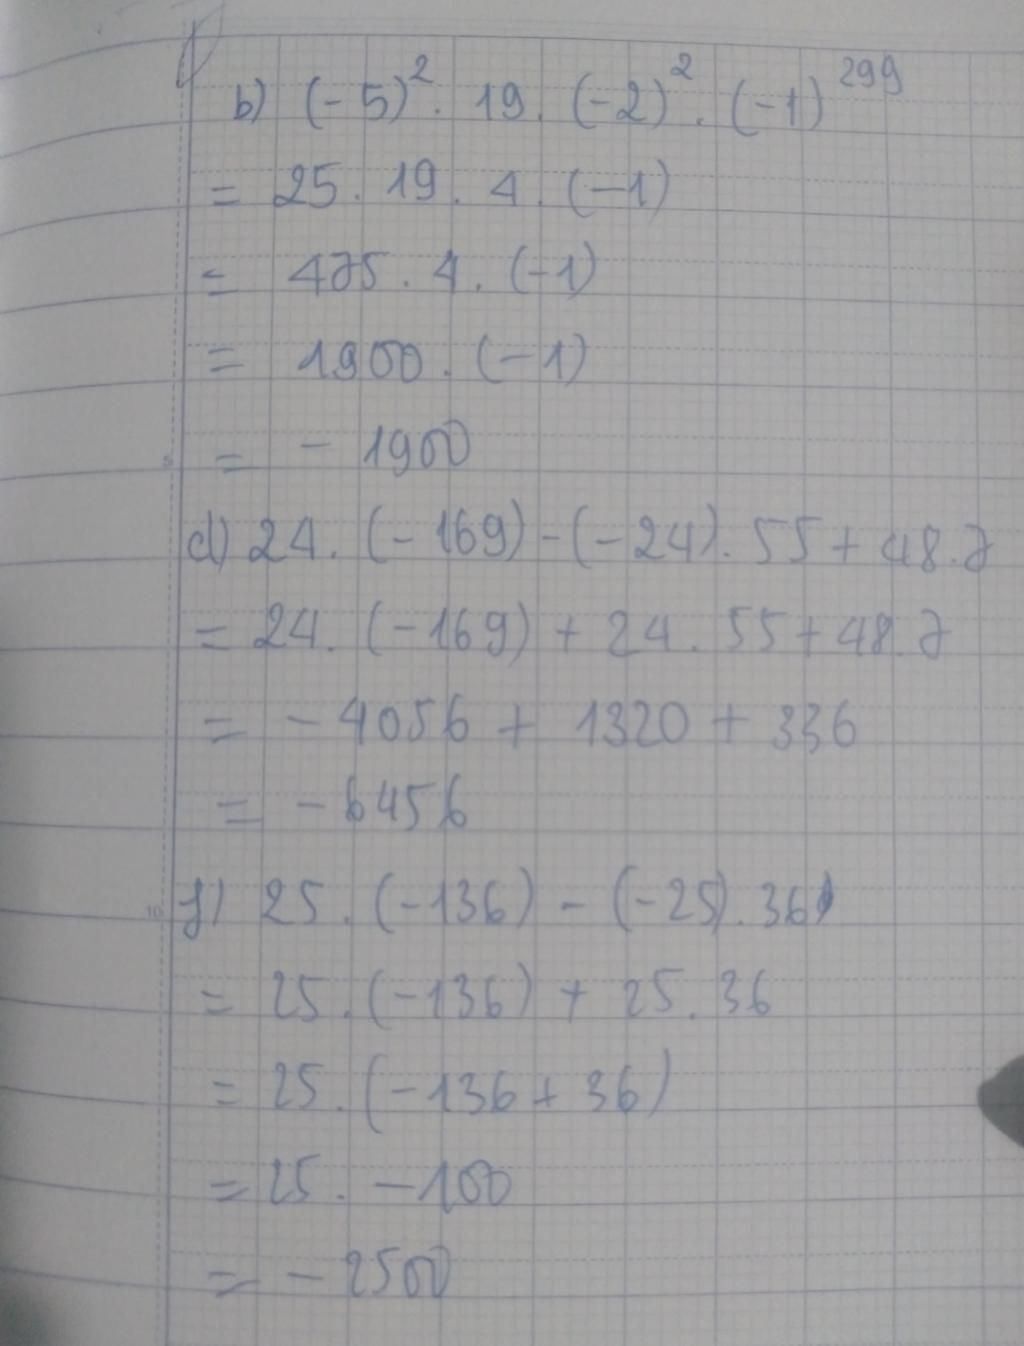 b) (-5)². 19. (-2)². (-1)²⁹⁹
= 25. 19. 4. (-1)
= 475. 4. (-1)
= 1900. (-1)
= - 1900
d) 24. (-169) - (-24). 55 + 48.7
= 24. (-169) + 24. 55 + 48.7
= - 4056 + 1320 + 336
= - 6456
f) 25. (-136) - (-25). 36
= 25. (-136) + 25. 36
= 25. (-136 + 36)
= 25. - 100
= - 2500